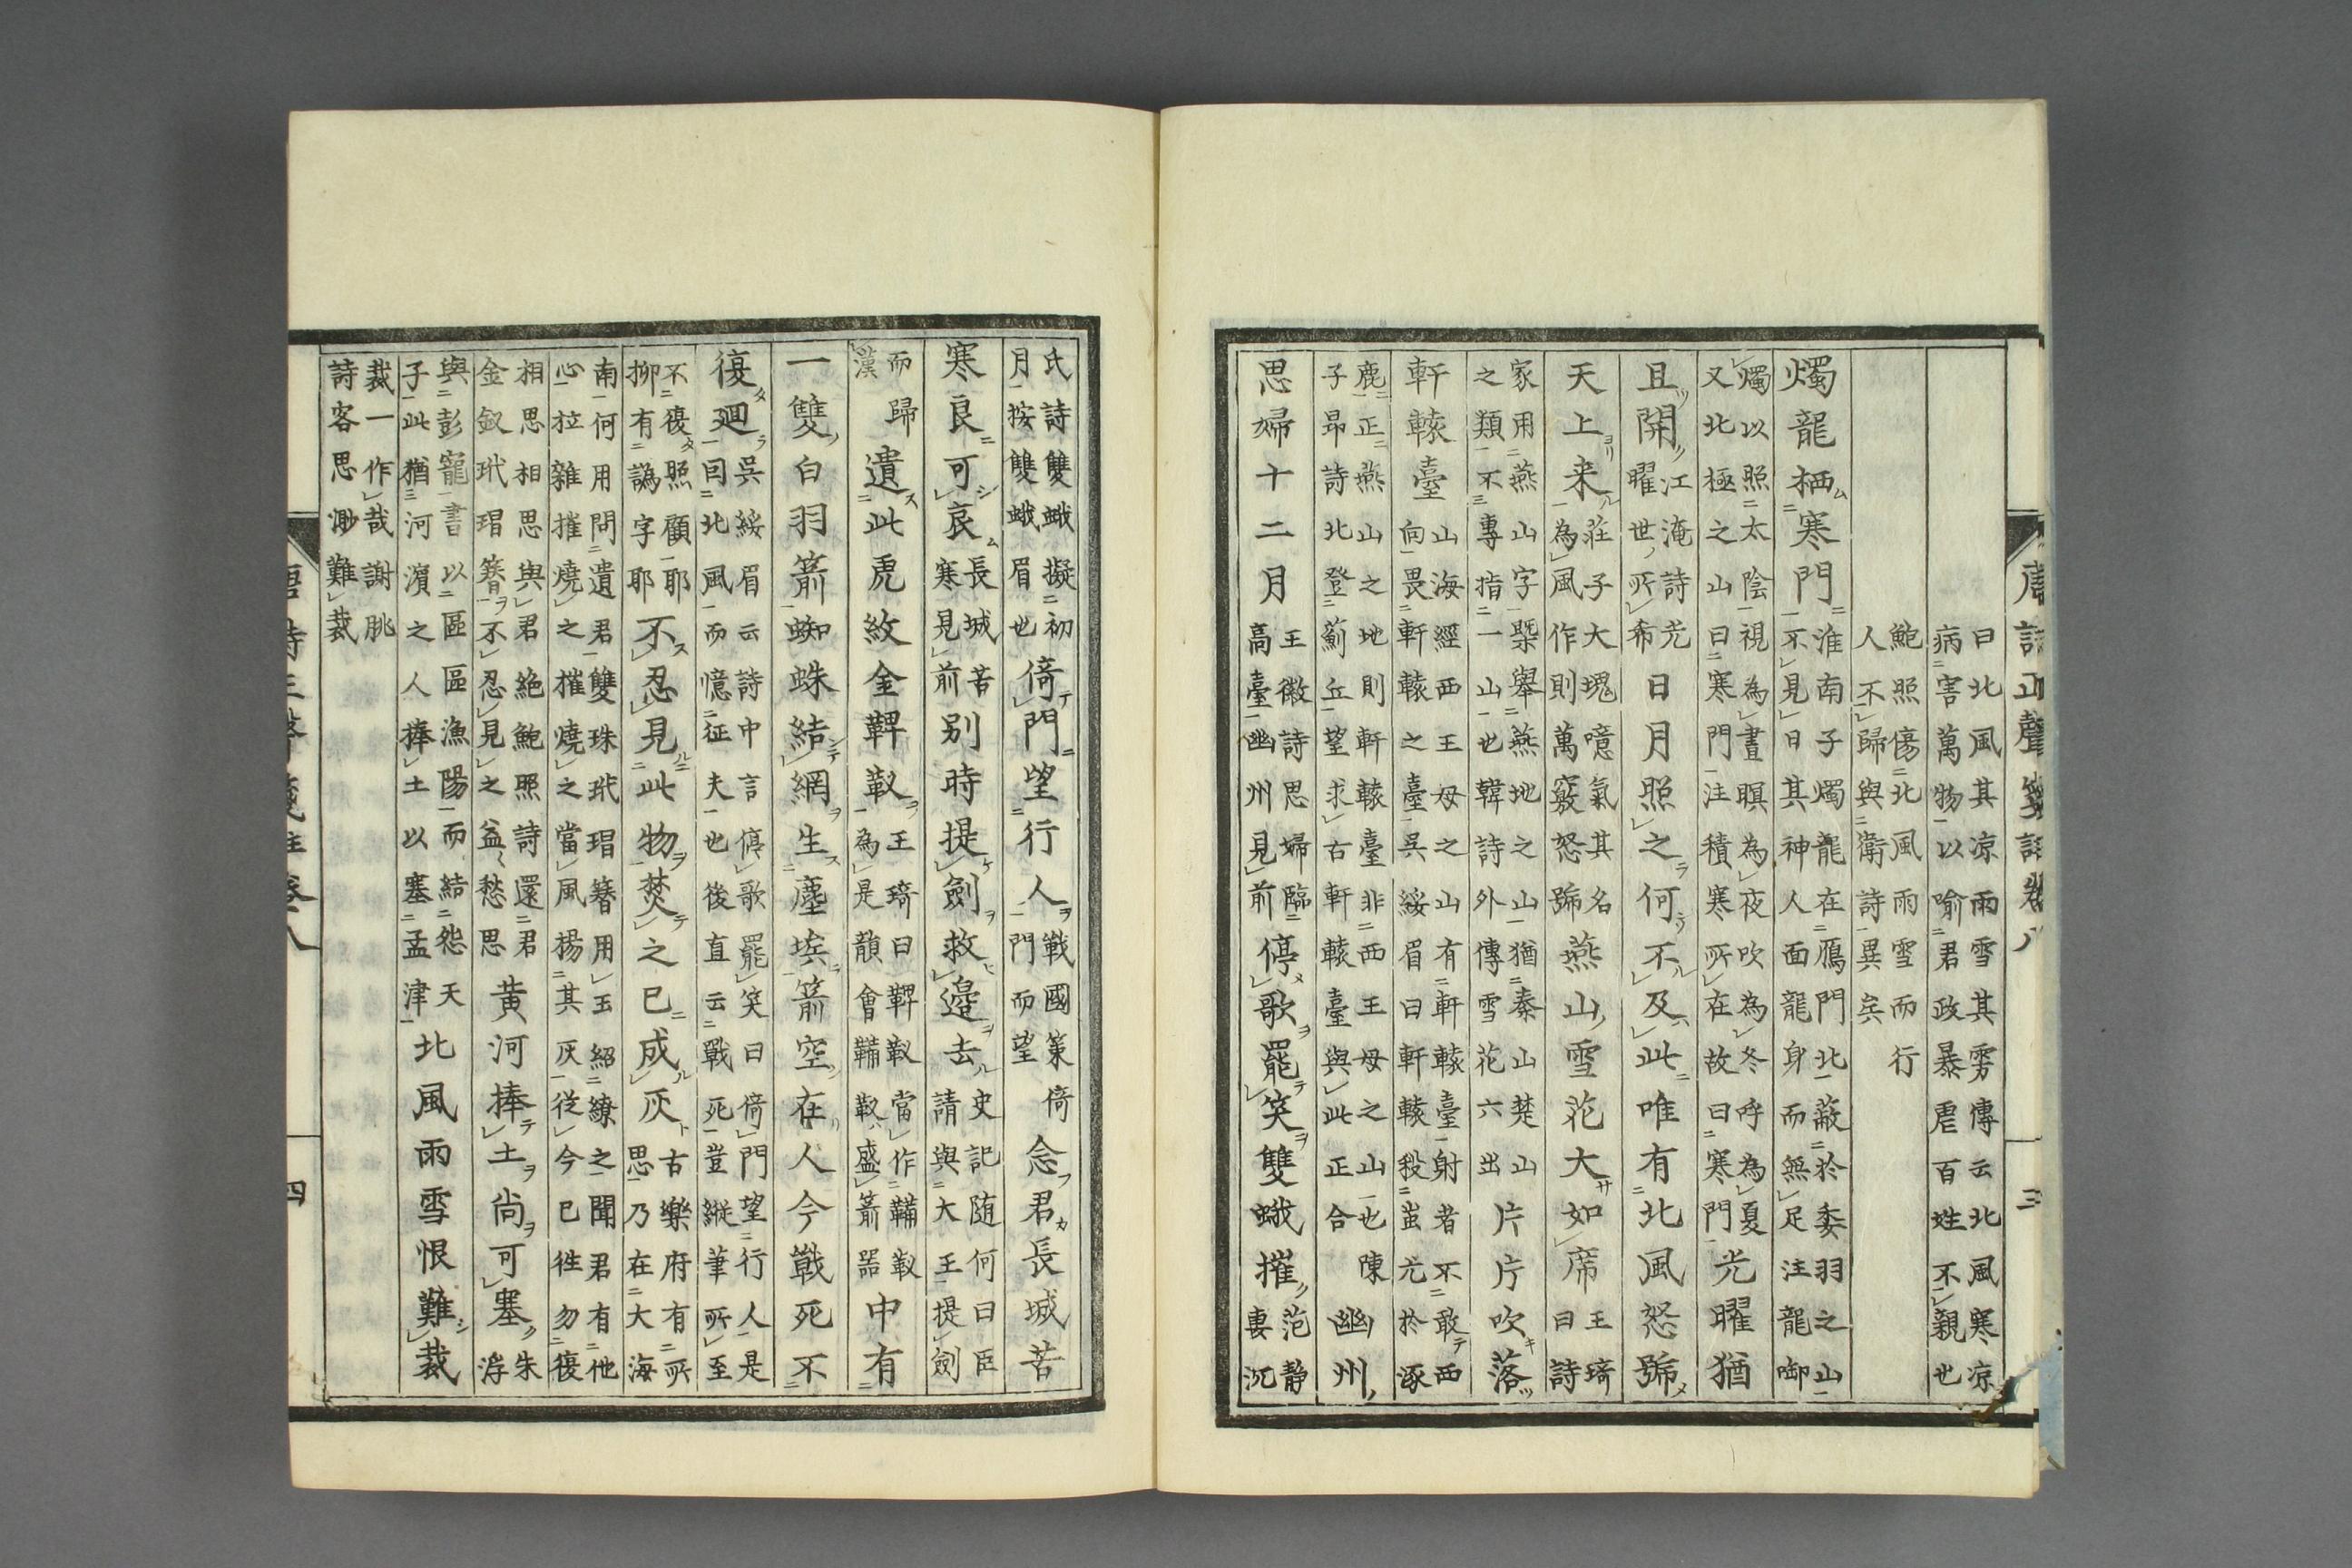 唐詩正聲箋註卷八 三
曰北風其凉雨雪其雱傳云北風寒凉
病害萬物以喻君政暴虐百姓不親也
鮑照傷北風雨雪而行
人不歸與衛詩異矣
燭龍栖寒門
淮南子燭龍在鴈門北蔽於委羽之山
不見日其神人面龍身而無足注龍啣
燭以照太陰視為晝暝為夜吹為冬呼為夏
又北極之山曰寒門注積寒所在故曰寒門
光曜猶
且開
江淹詩光
曜世所希
日月照之何不及此唯有北風怒號
天上来
莊子大塊噫氣其名
為風作則萬竅怒號
燕山雪花大如席
王琦
曰詩
家用燕山字槩舉燕地之山猶秦山楚山
之類不專指一山也韓詩外傳雪花六出
片片吹落
軒轅臺
山海經西王母之山有軒轅臺射者不敢西
向畏軒轅之臺吳綏眉曰軒轅殺蚩尤於涿
鹿正燕山之地則軒轅臺非西王母之山也陳
子昻詩北登薊丘望求古軒轅臺與此正合
幽州
思婦十二月
王微詩思婦臨
高臺幽州見前
停歌罷笑雙蛾摧
范静
妻沉
氏詩雙蛾擬初
月按雙蛾眉也
倚門望行人
戰國策倚
門而望
念君長城苦
寒良可哀
長城苦
寒見前
别時提劍救邉去
史記随何曰臣
請與大王提劍
而歸
漢
遺此虎紋金鞞靫
王琦曰鞞靫當作鞴靫
為是韻會鞴靫盛箭器
中有
一雙白羽箭蜘蛛結網生塵埃箭空在人今戰死不
復廻
吳綏眉云詩中言停歌罷笑曰倚門望行人是
囙北風而憶征夫也後直云戰死豈縦筆所至
不復照顧耶
抑有譌字耶
不忍見此物焚之已成灰
古樂府有所
思乃在大海
南何用問遺君雙珠玳瑁簪用玉紹繚之聞君有他
心拉雜摧燒之摧燒之當風揚其灰從今已徃勿復
相思相思與君絶鮑照詩還君
金釵玳瑁簪不忍見之益愁思
黄河捧土尚可塞
朱
浮
與彭寵書以區區漁陽而結怨天
子此猶河濱之人捧土以塞孟津
北風雨雪恨難裁
裁一作哉謝朓
詩客思渺難裁
唐詩正聲箋註卷八 四